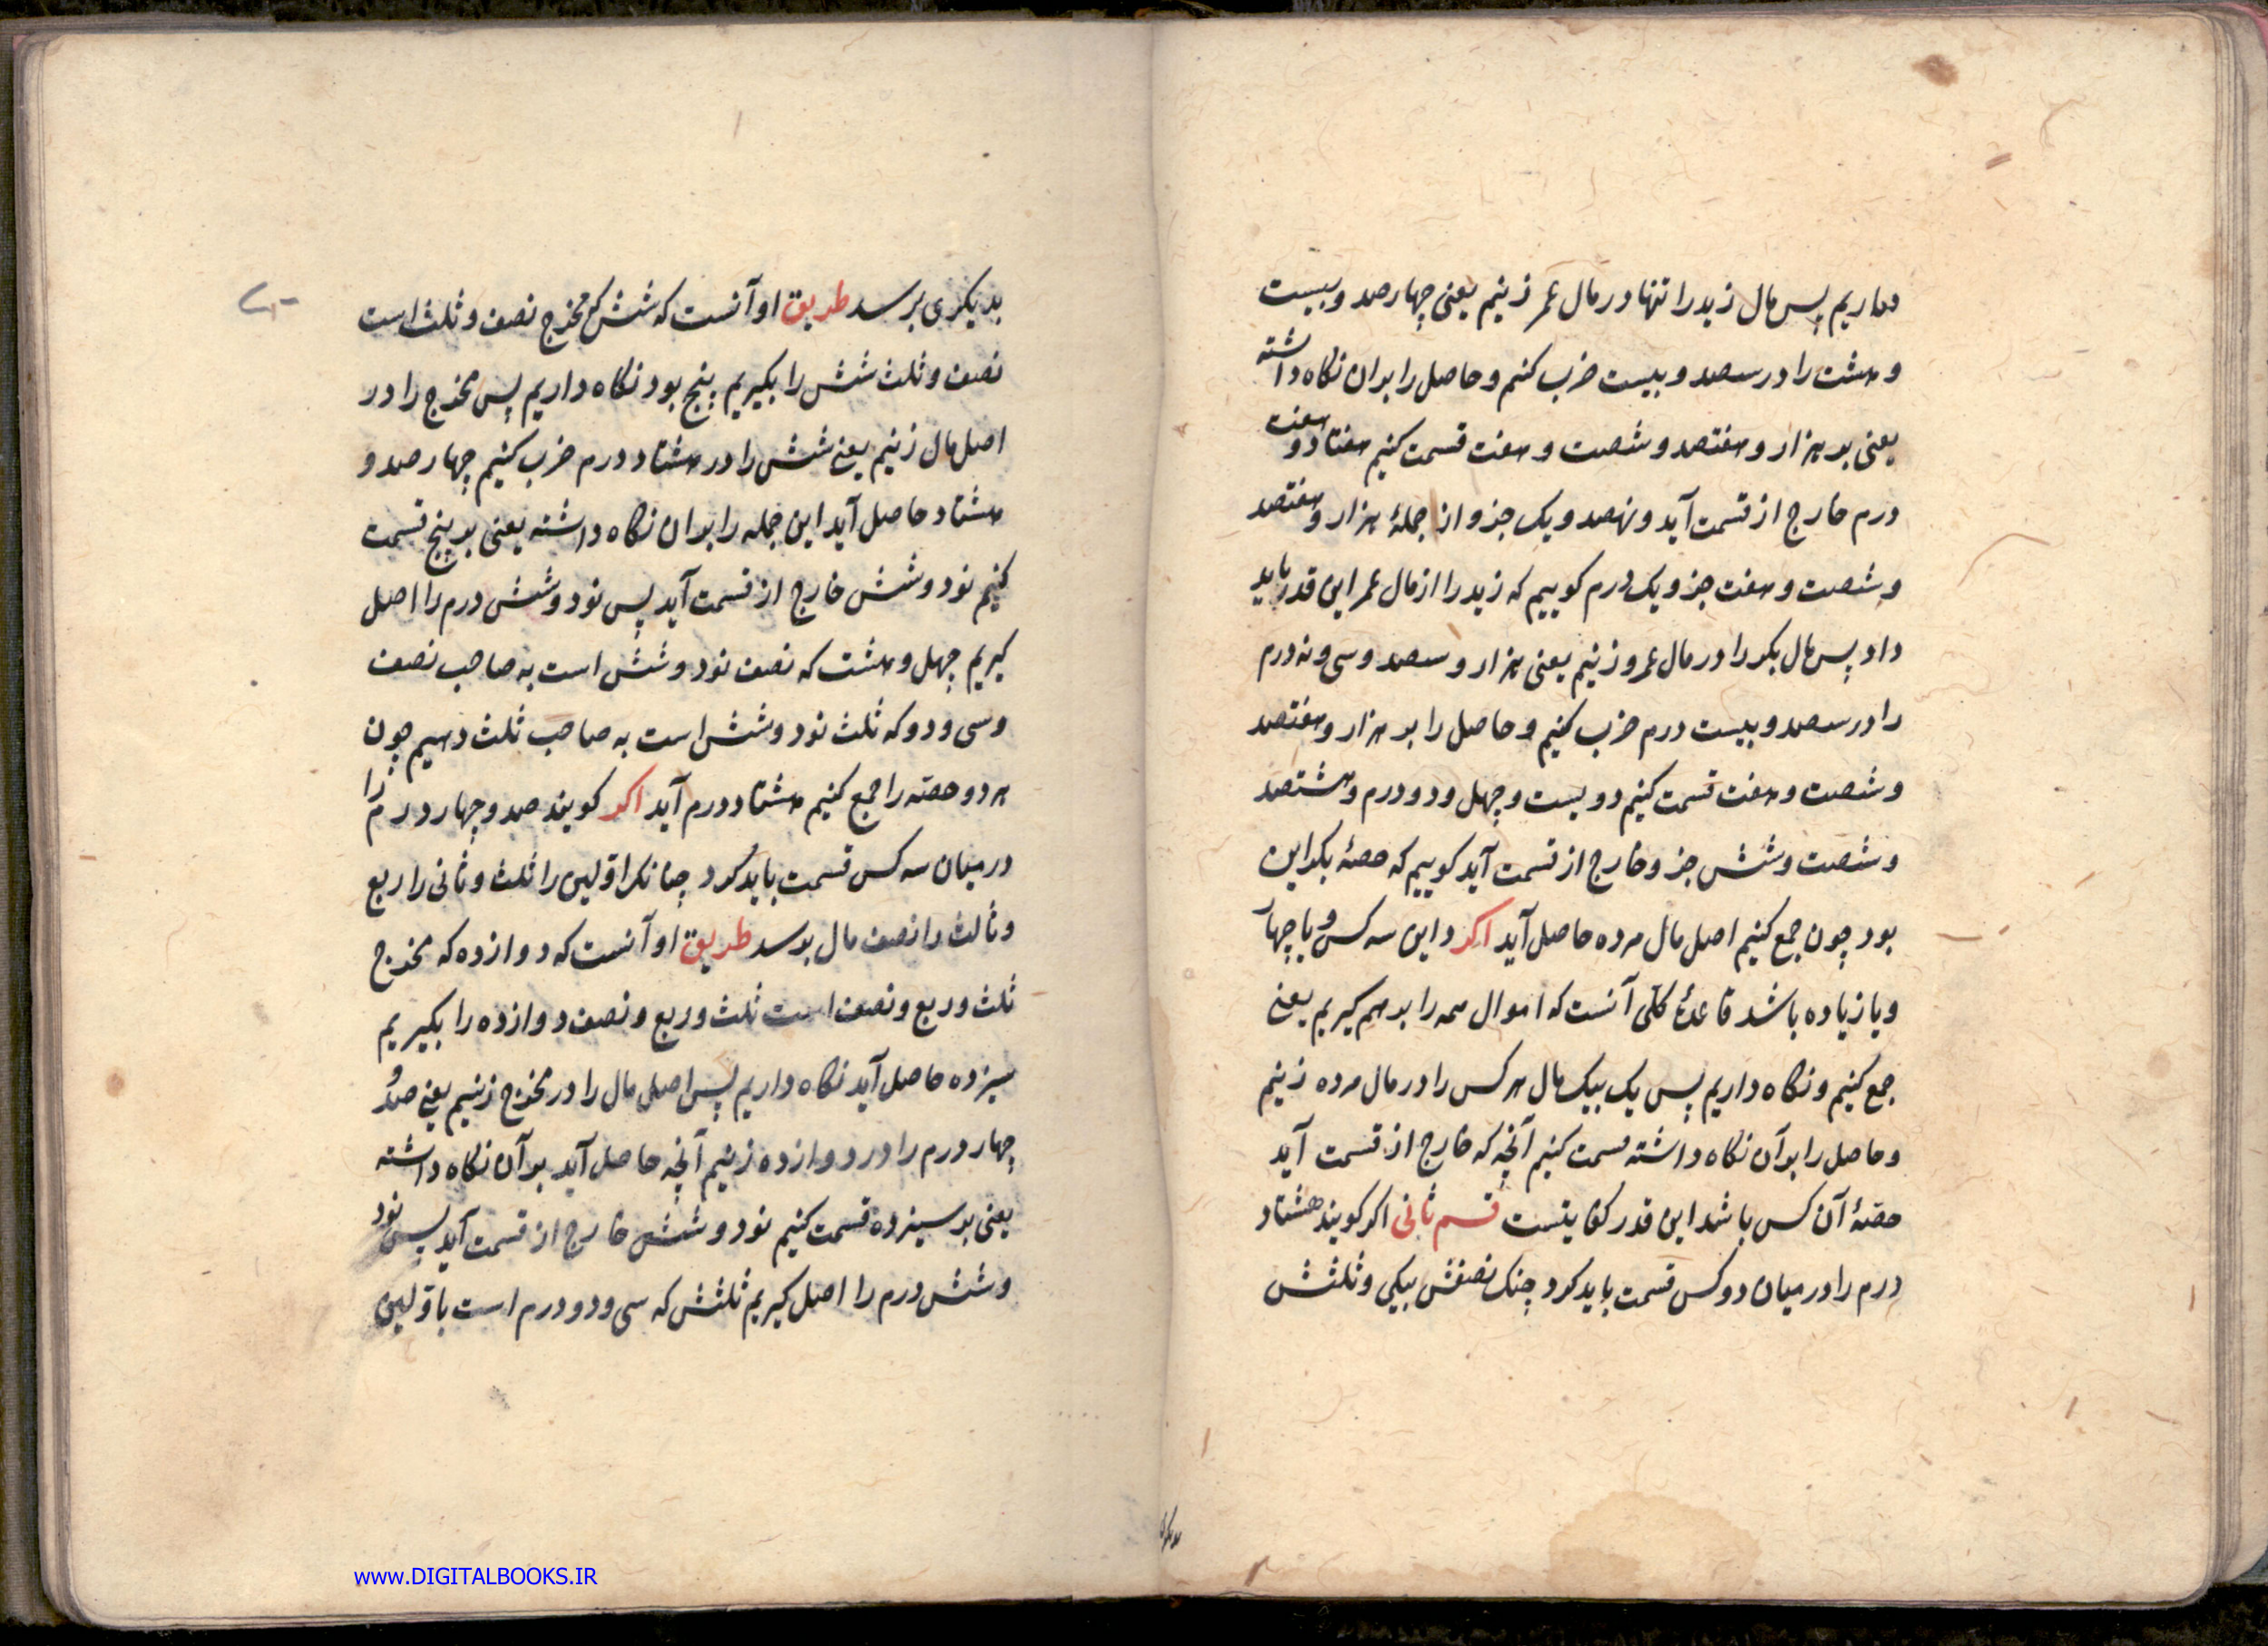 داریم پس مال زید را تنها در مال عمر زنیم یعنی چهار صد و بیست
و هشت را در سصد و بیست ضرب کنیم و حاصل را بران نکاه داشته
یعنی بر هزار و هفتصد و شصت و هفت قسمت کنیم هفتاد و هفت
درم خارج از قسمت آید و نهصد و یک جزو از جملۀ هزار و هفتصد
و شصت و هفت جزو یک درم کوییم که زید را از مال عمر این قدر باید
داد پس مال بکر را در مال عمرو زنیم یعنی هزار و سصد و سی و نه درم
را در سصد و بیست درم ضرب کنیم و حاصل را بر هزار و هفتصد
و شصت و هفت قسمت کنیم دویست و چهل و دو درم و هشتصد
و شصت و شش جزو خارج از قسمت آید کوییم که حصۀ بکر این
بود چون جمع کنیم اصل مال مرده حاصل آید اکر داین سه کس و یا چهار
و یا زیاده باشد قاعدۀ کلّی آنست که اموال همه را بر هم کیریم یعنی
جمع کنیم و نکاه داریم پس یک بیک مال هر کس را در مال مرده زنیم
و حاصل را بر آن نکاه داشته قسمت کنیم آنچه که خارج از قسمت آید
حصّۀ آن کس باشد این قدر کفایتست قسم ثانی اکر کویند هشتاد
درم را در میان دو کس قسمت باید کرد چنک نصفش بیکی و ثلثش
بدیکری
بدیکری برسد طریق او آنست که شش که مخرج نصف و ثلث است
نصف و ثلث شش را بکیریم پنج بود نکاه داریم پس مخرج را در
اصل مال زنیم یعنی شش را در هشتاد درم ضرب کنیم چهار صد و
هشتاد حاصل آید این جمله را بران نکاه داشته یعنی بر پنج قسمت
کنیم نود و شش خارج از قسمت آید پس نود و شش درم را اصل
کیریم چهل و هشت که نصف نود و شش است به صاحب نصف
و سی و دو که ثلث نود و شش است به صاحب ثلث دهیم چون
هر دو حصّه را جمع کنیم هشتاد درم آید اکر کویند صد و چهار درم را
در میان سه کس قسمت باید کرد چنانک اوّلین را ثلث و ثانی را ربع
و ثالث را نصف مال برسد طریق او آنست که دوازده که مخرج
ثلث و ربع و نصف است ثلث و ربع و نصف دوازده را بکیریم
سیزده حاصل آید نکاه داریم پس اصل مال را در مخرج زنیم یعنی صد و
چهار درم را در دوازده زنیم آنچه حاصل آید بر آن نکاه داشته
یعنی بر سیزده قسمت کنیم نود و شش خارج از قسمت آید پس نود
و شش درم را اصل کیریم ثلثش که سی و دو درم است باوّلین
www.DIGITALBOOKS.IR